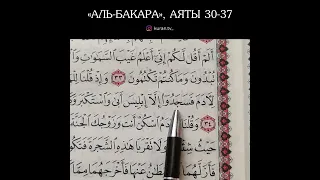 «АЛЬ-БАКАРА», АЯТЫ 30-37
kuran.tv_
أَلَمْ أَقُل لَّكُمْ إِنِّي أَعْلَمُ غَيْبَ السَّمَوَاتِ وَا
تُبْدُونَ وَمَا كُنتُمْ تَكْتُمُونَ ٣٣ وَإِذْ قُلْنَا لِلْمَ
لِآدَمَ فَسَجَدُوا إِلَّا إِبْلِيسَ أَبَىٰ وَاسْتَكْبَرَ وَ
٣٤ وَقُلْنَا آدَمُ اسْكُنْ أَنتَ وَزَوْجُكَ الْجَنَّةَ
حَيْثُ شِئْ وَلَا تَقْرَبَا هَٰذِهِ الشَّجَرَةَ فَتَكُو
فَأَزَلَّهُمَا الشَّيْطَنُ عَنْهَا فَأَخْرَجَهُمَا مِمَّا